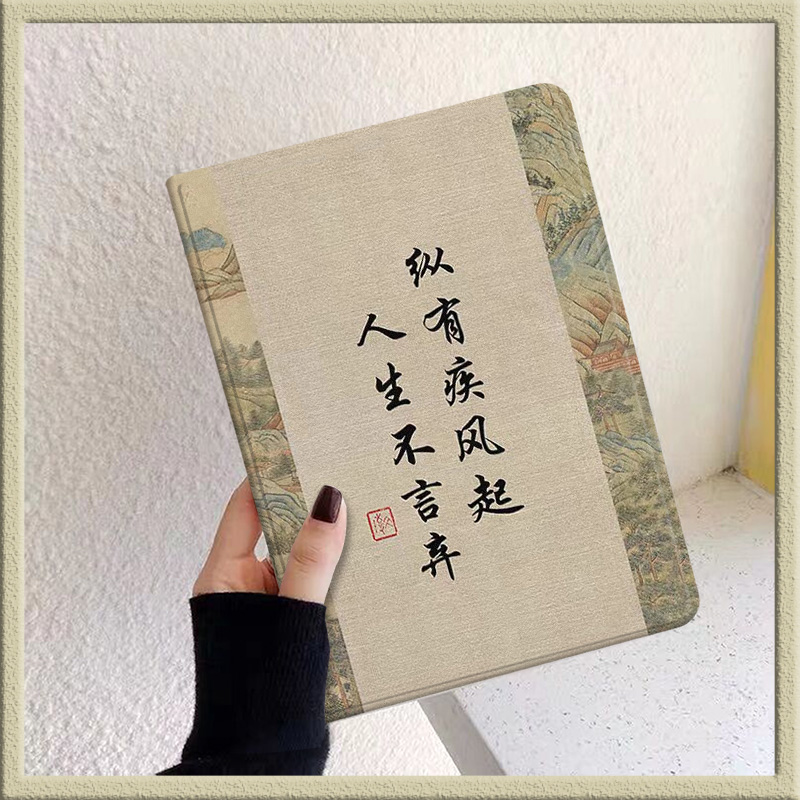 纵有疾风起
人生不言弃